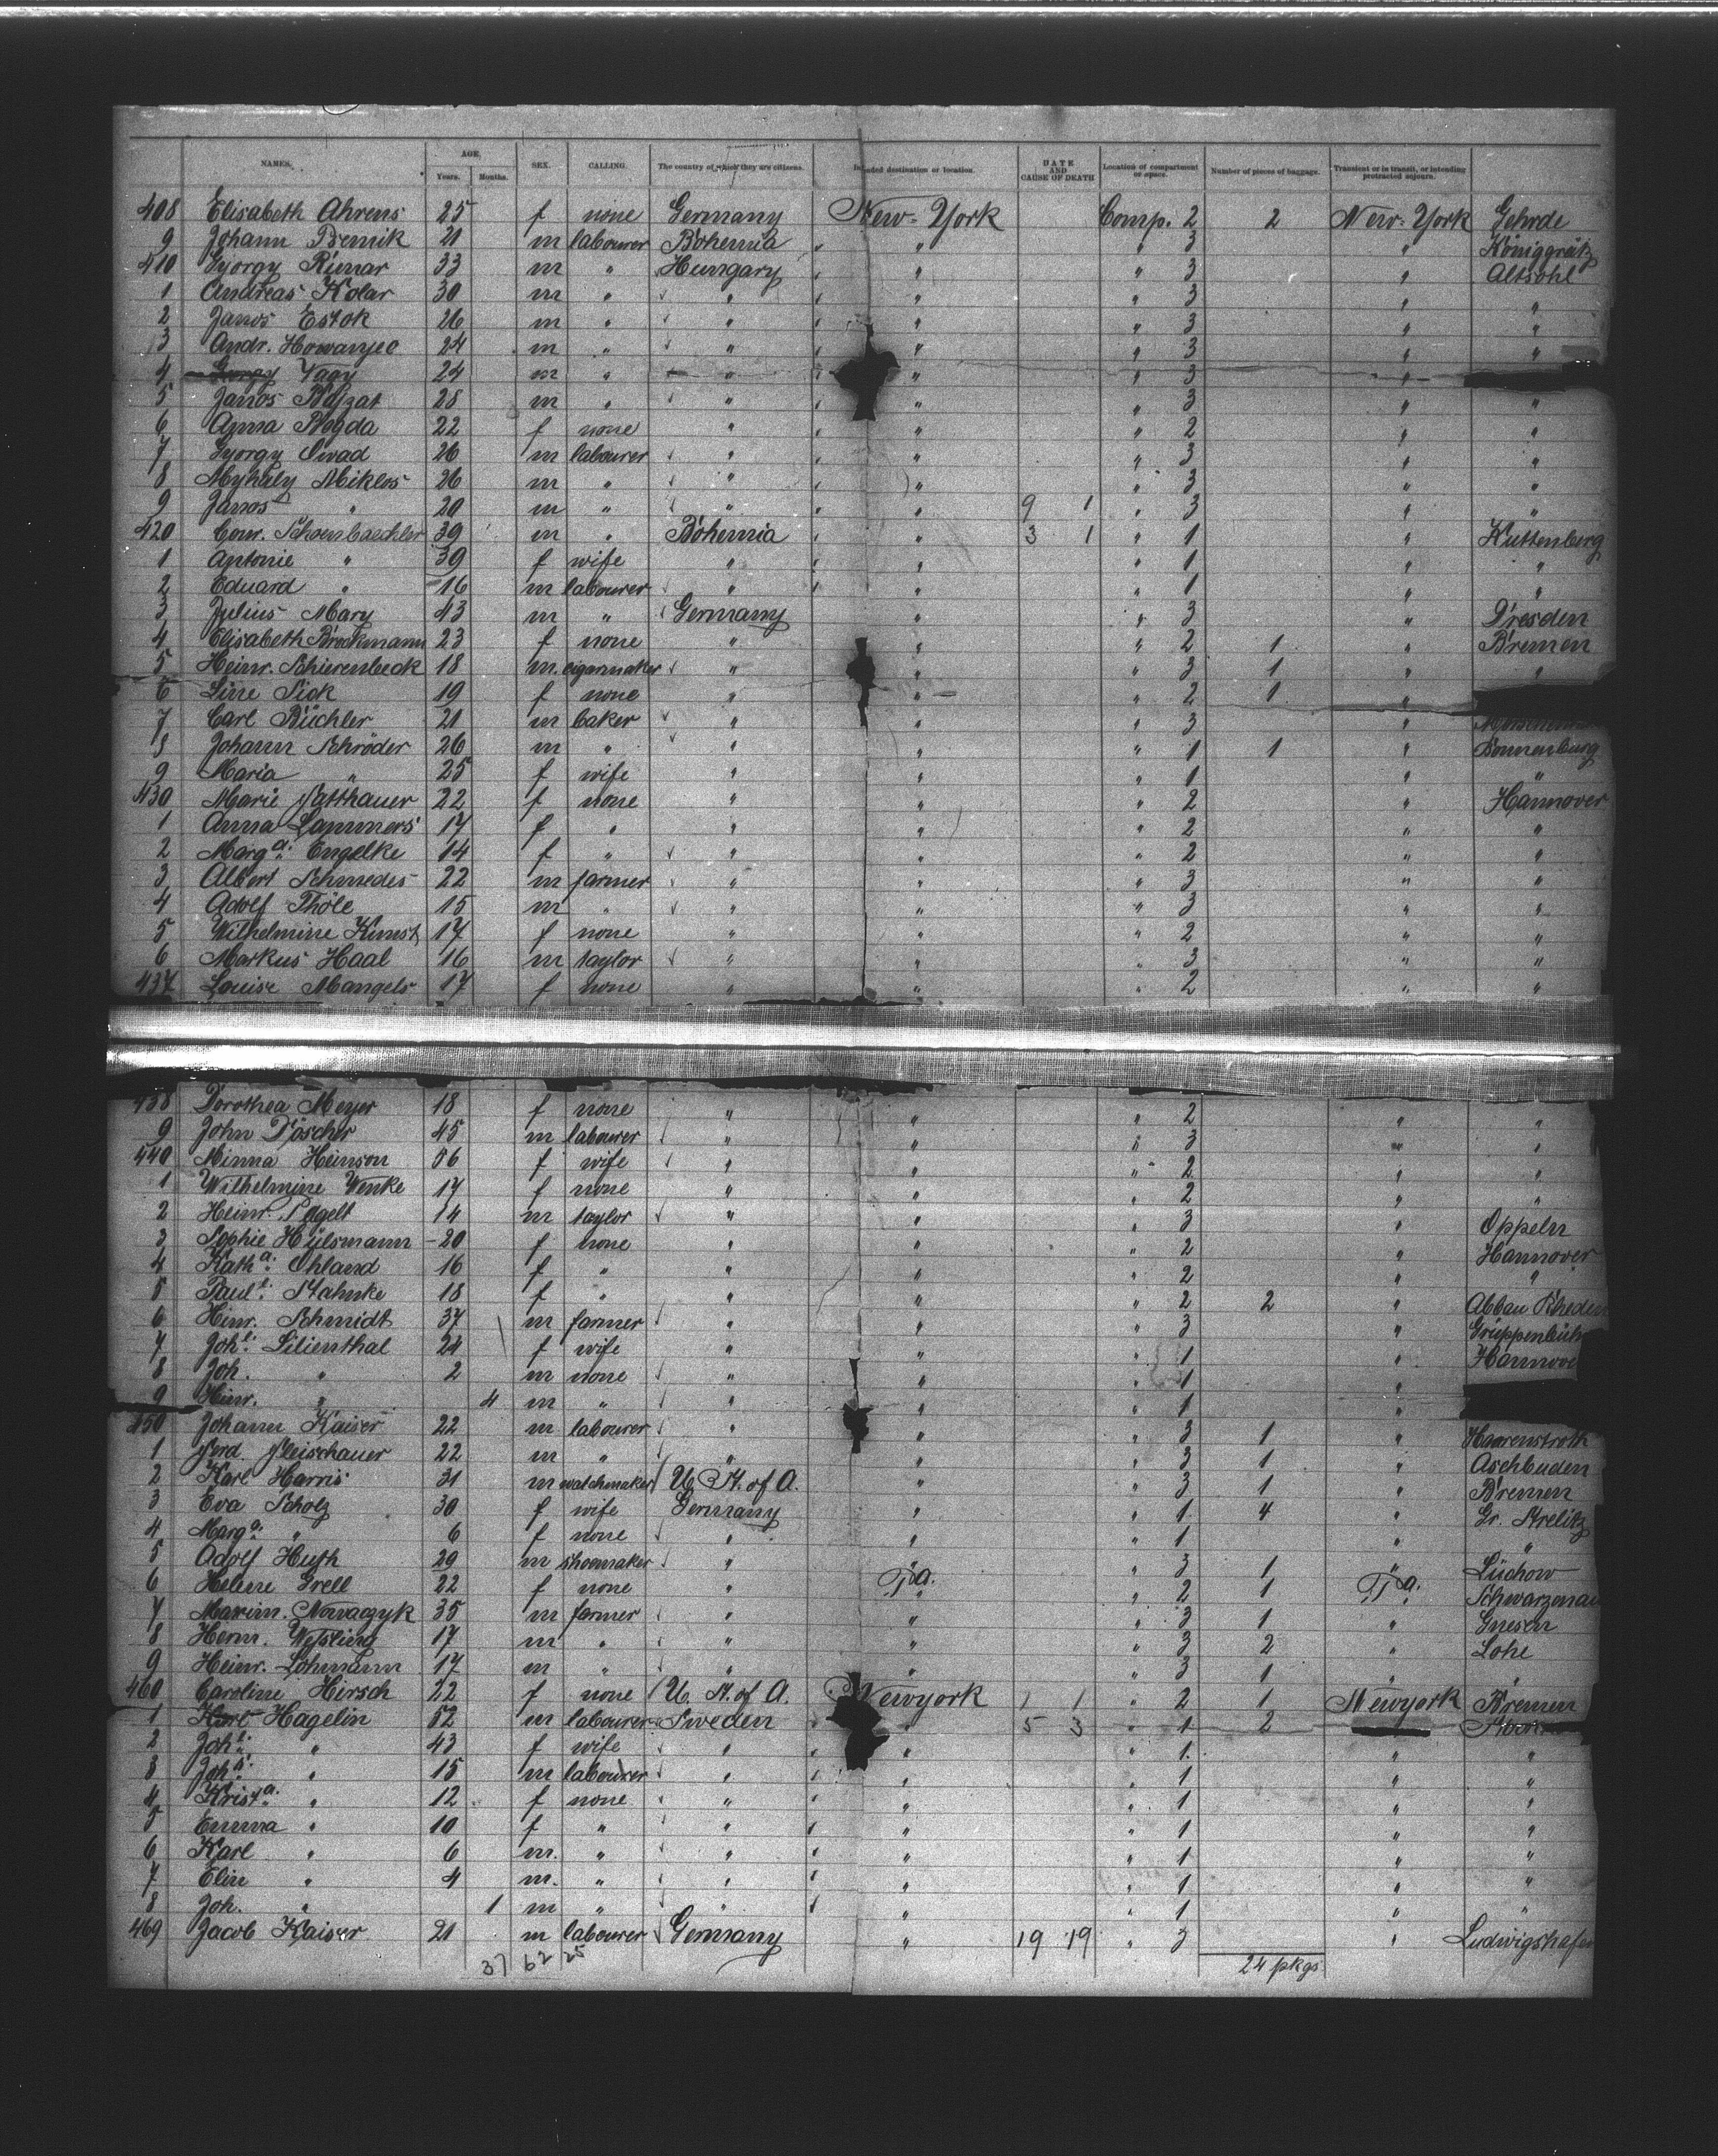 NAMES. AGE. Years. Months. SEX. CALLING. The country of which they are citizens. Intended destination or location. DATE AND CAUSE OF DEATH Location of compartment or space. Number of pieces of baggage. Transient or in transit, or intending protracted sojourn.
408 Elisabeth Ahrens 25 f none Germany New-York Comp. 2 2 New-York Gehrde
9 Johann Bernik 21 m labourer Bohemia " " 3 " Königgrätz
410 Gyorgy Rimar 33 m " Hungary " " 3 " Altsohl
1 Andreas Kolar 30 m " " " " 3 " "
2 Janos Estok 26 m " " " " 3 " "
3 Andr. Howanyec 24 m " " " " 3 " "
4 Vagy 24 m " " " " 3 "
5 Janos 28 m " " " " 3 " "
6 Anna 22 f none " " " 2 " "
7 Gyorgy 26 m labourer " " " 3 " "
8 Myhaly Miklos 26 m " " " " 3 " "
9 Janos " 20 m " " " 9 1 " 3 " "
420 Conr. Schoenbaechler 39 m " Bohemia " 3 1 " 1 " Kuttenberg
1 Antonie " 39 f wife " " " 1 " "
2 Eduard " 16 m labourer " " " 1 " "
3 Julius Mary 43 m " Germany " " 3 " Dresden
4 Elisabeth Brockmann 23 f none " " " 2 1 " Bremen
5 Heinr. Schierenbeck 18 m. cigarmaker " " " 3 1 " "
6 Line Sick 19 f none " " " 2 1 "
7 Carl Büchler 21 m baker " " " 3 "
8 Johann Schröder 26 m " " " " 1 1 " Sonnenburg
9 Maria " 25 f wife " " " 1 " "
430 Marie Natthauer 22 f none " " " 2 " Hannover
1 Anna Lammers 17 f " " " " 2 " "
2 Marg.a Engelke 14 f " " " " 2 " "
3 Albert Schmedes 22 m farmer " " " 3 " "
4 Adolf Thöle 15 m " " " " 3 " "
5 Wilhelmine Kunst 17 f none " " " 2 " "
6 Markus Haal 16 m taylor " " " 3 " "
437 Louise Mangels 17 f none " " " 2 " "
438 Dorothea Meyer 18 f none " " " 2 " "
9 John Döscher 45 m labourer " " " 3 " "
440 Minna Heinson 56 f wife " " " 2 " "
1 Wilhelmine Wenke 17 f none " " " 2 " "
2 Heinr. Pegelt 14 m taylor " " " 3 " Oppeln
3 Sophie Hülsmann 20 f none " " " 2 " Hannover
4 Kath.a Ohland 16 f " " " " 2 " "
5 Paul.e Stahnke 18 f " " " " 2 2 " Abbau Rheden
6 Hinr. Schmidt 37 m farmer " " " 3 " Grüppenbühr
7 Joh.e Lilienthal 24 f wife " " " 1 " Hannove
8 Joh. " 2 m none " " " 1 "
9 Hinr. " 4 m " " " " 1 "
450 Johann Kaiser 22 m labourer " " " 3 1 " Haarenstroth
1 Ferd. Fleischauer 22 m " " " " 3 1 " Aschbuden
2 Karl Harris 31 m watchmaker U. St. of A. " " 3 1 " Bremen
3 Eva Scholz 30 f wife Germany " " 1 4 " Gr. Strelitz
4 Marg.a " 6 f none " " " 1 " "
5 Adolf Huth 29 m shoemaker " " " 3 1 " Lüchow
6 Helene Grell 22 f none " Pa. " 2 1 Pa. Schwarzenau
7 Maxim. Nowaczyk 35 m farmer " " " 3 1 " Gnesen
8 Herm. Wessling 17 m " " " " 3 2 " Lohe
9 Heinr. Lohmann 17 m " " " " 3 1 " "
460 Caroline Hirsch 22 f none U. St. of A. Newyork 1 1 " 2 1 Newyork Bremen
1 Karl Hagelin 52 m labourer Sweden " 5 3 " 1 2
2 Joh.e " 43 f wife " " " 1 " "
3 Joh.s " 15 m labourer " " " 1 " "
4 Krist.a " 12 f none " " " 1 " "
5 Emma " 10 f " " " " 1 " "
6 Karl " 6 m. " " " " 1 " "
7 Elin " 4 m. " " " " 1 " "
8 Joh. " 1 m " " " " 1 "
469 Jacob Kaiser 21 m labourer Germany " 19 19 " 3 " Ludwigshafen
37 62 25 24 pkgs